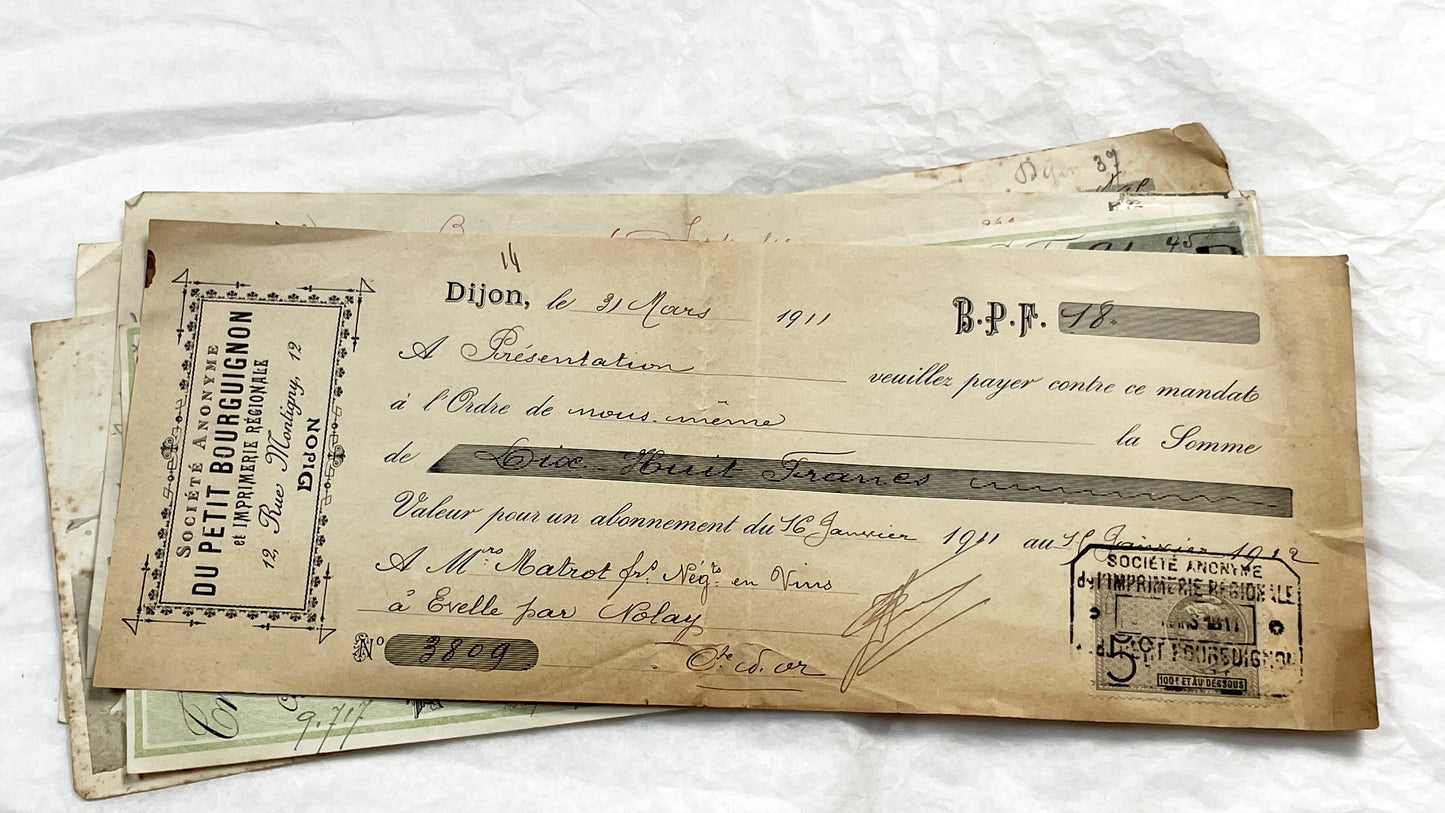 Dijon 37
45
14
SOCIÉTÉ ANONYME
DU PETIT BOURGUIGNON
et IMPRIMERIE RÉGIONALE
12, Rue Montigny, 12
DIJON
Dijon, le 31 Mars 1911
B.P.F. 18.
A Présentation veuillez payer contre ce mandat
à l'Ordre de nous-même la Somme
de Dix-Huit Francs
Valeur pour un abonnement du 16 Janvier 1911 au 15 Janvier 1912
A Mrs Matrot frs Négts en Vins
à Evelle par Nolay
No 3809
Cte d'or
SOCIÉTÉ ANONYME
de l'IMPRIMERIE RÉGIONALE
MARS 1911
PETIT BOURGUIGNON
5c
100F ET AU DESSOUS
9.717